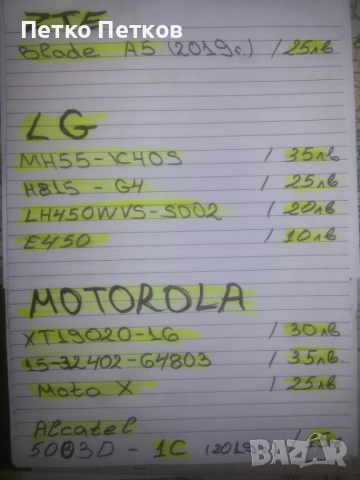 Петко Петков
ZTE
Blade A5 (2019г.) / 25лв
LG
MH55-1C40S / 35лв
H815 - G4 / 25лв
LH450WVS-SD02 / 20лв
E450 / 10лв
MOTOROLA
XT19020-16 / 30лв
15-32402-64803 / 35лв
Moto X / 25лв
Alcatel
5003D - 1C (2019г. /
BAZAR